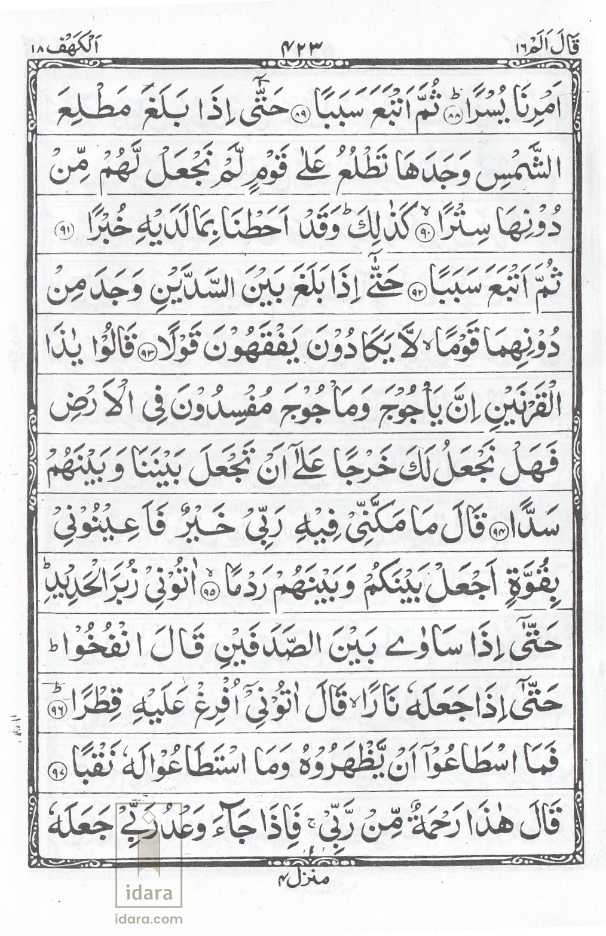 قَالَ اَلَمْ ١٦
٤٢٣
اَلْكَهْف ١٨
اَمْرِنَا يُسْرًا ؕ ﴿٨٨﴾ ثُمَّ اَتْبَعَ سَبَبًا ﴿٨٩﴾ حَتّٰۤى اِذَا بَلَغَ مَطْلِعَ
الشَّمْسِ وَجَدَهَا تَطْلُعُ عَلٰى قَوْمٍ لَّمْ نَجْعَلْ لَّهُمْ مِّنْ
دُوْنِهَا سِتْرًا ۙ ﴿٩٠﴾ كَذٰلِكَ ؕ وَقَدْ اَحَطْنَا بِمَا لَدَيْهِ خُبْرًا ﴿٩١﴾
ثُمَّ اَتْبَعَ سَبَبًا ﴿٩٢﴾ حَتّٰۤى اِذَا بَلَغَ بَيْنَ السَّدَّيْنِ وَجَدَ مِنْ
دُوْنِهِمَا قَوْمًا ۙ لَّا يَكَادُوْنَ يَفْقَهُوْنَ قَوْلًا ﴿٩٣﴾ قَالُوْا يٰذَا
الْقَرْنَيْنِ اِنَّ يَاْجُوْجَ وَمَاْجُوْجَ مُفْسِدُوْنَ فِى الْاَرْضِ
فَهَلْ نَجْعَلُ لَكَ خَرْجًا عَلٰۤى اَنْ تَجْعَلَ بَيْنَنَا وَبَيْنَهُمْ
سَدًّا ﴿٩٤﴾ قَالَ مَا مَكَّنِّىْ فِيْهِ رَبِّىْ خَيْرٌ فَاَعِيْنُوْنِىْ
بِقُوَّةٍ اَجْعَلْ بَيْنَكُمْ وَبَيْنَهُمْ رَدْمًا ۙ ﴿٩٥﴾ اٰتُوْنِىْ زُبَرَ الْحَدِيْدِ ؕ
حَتّٰۤى اِذَا سَاوٰى بَيْنَ الصَّدَفَيْنِ قَالَ انْفُخُوْا ؕ
حَتّٰۤى اِذَا جَعَلَهٗ نَارًا ۙ قَالَ اٰتُوْنِىْۤ اُفْرِغْ عَلَيْهِ قِطْرًا ؕ ﴿٩٦﴾
فَمَا اسْطَاعُوْۤا اَنْ يَّظْهَرُوْهُ وَمَا اسْتَطَاعُوْا لَهٗ نَقْبًا ﴿٩٧﴾
قَالَ هٰذَا رَحْمَةٌ مِّنْ رَّبِّىْ ۚ فَاِذَا جَآءَ وَعْدُ رَبِّىْ جَعَلَهٗ
منزل ٤
idara
idara.com